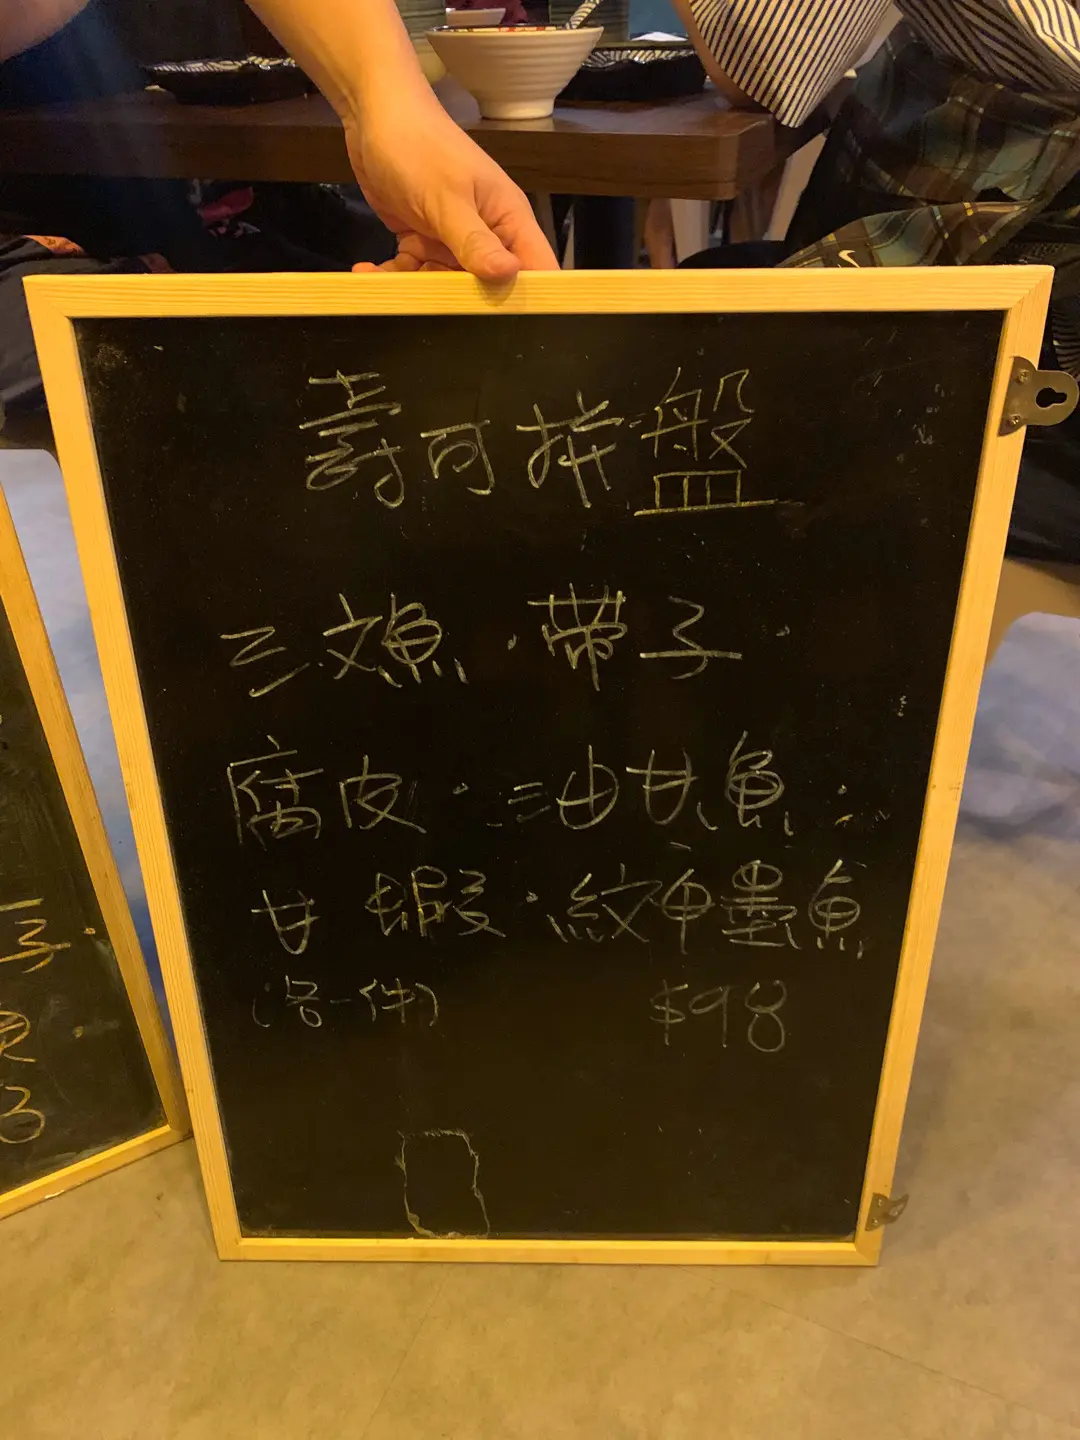 壽司拼盤
三文魚·帶子·
腐皮·油甘魚·
甘蝦·紋甲墨魚
(各一件) $98
子
魚